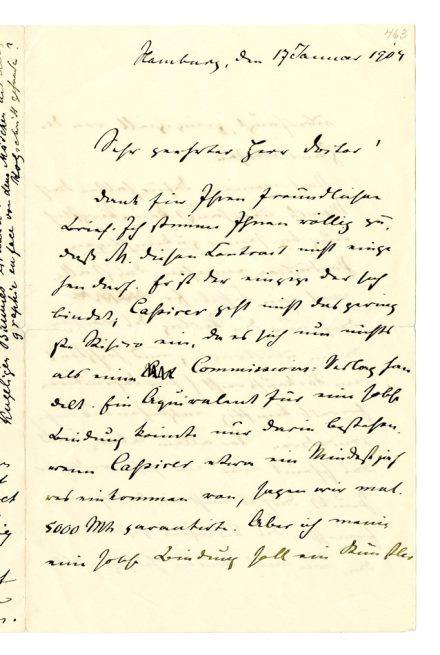 763
Hamburg, den 17 Januar 1904
Sehr geehrter Herr Doktor!
Dank für Ihren freundlichen
Brief. Ich stimme Ihnen völlig zu,
daß M. diesen Contract nicht einge
hen darf. Er ist der einzige der sich
bindet, Cassirer geht nicht das gering
ste Risico ein, da es sich um nichts
als einen Commissions-Verlag han
delt. Ein Äquivalent für eine solche
Bindung könnte nur darin bestehen,
wenn Cassirer etwa ein Mindestjah
reseinkommen von, sagen wir mal.
5000 Mk garantirte. Aber ich meine
eine solche Bindung soll ein Künstler
graphie en face von dem Märchen